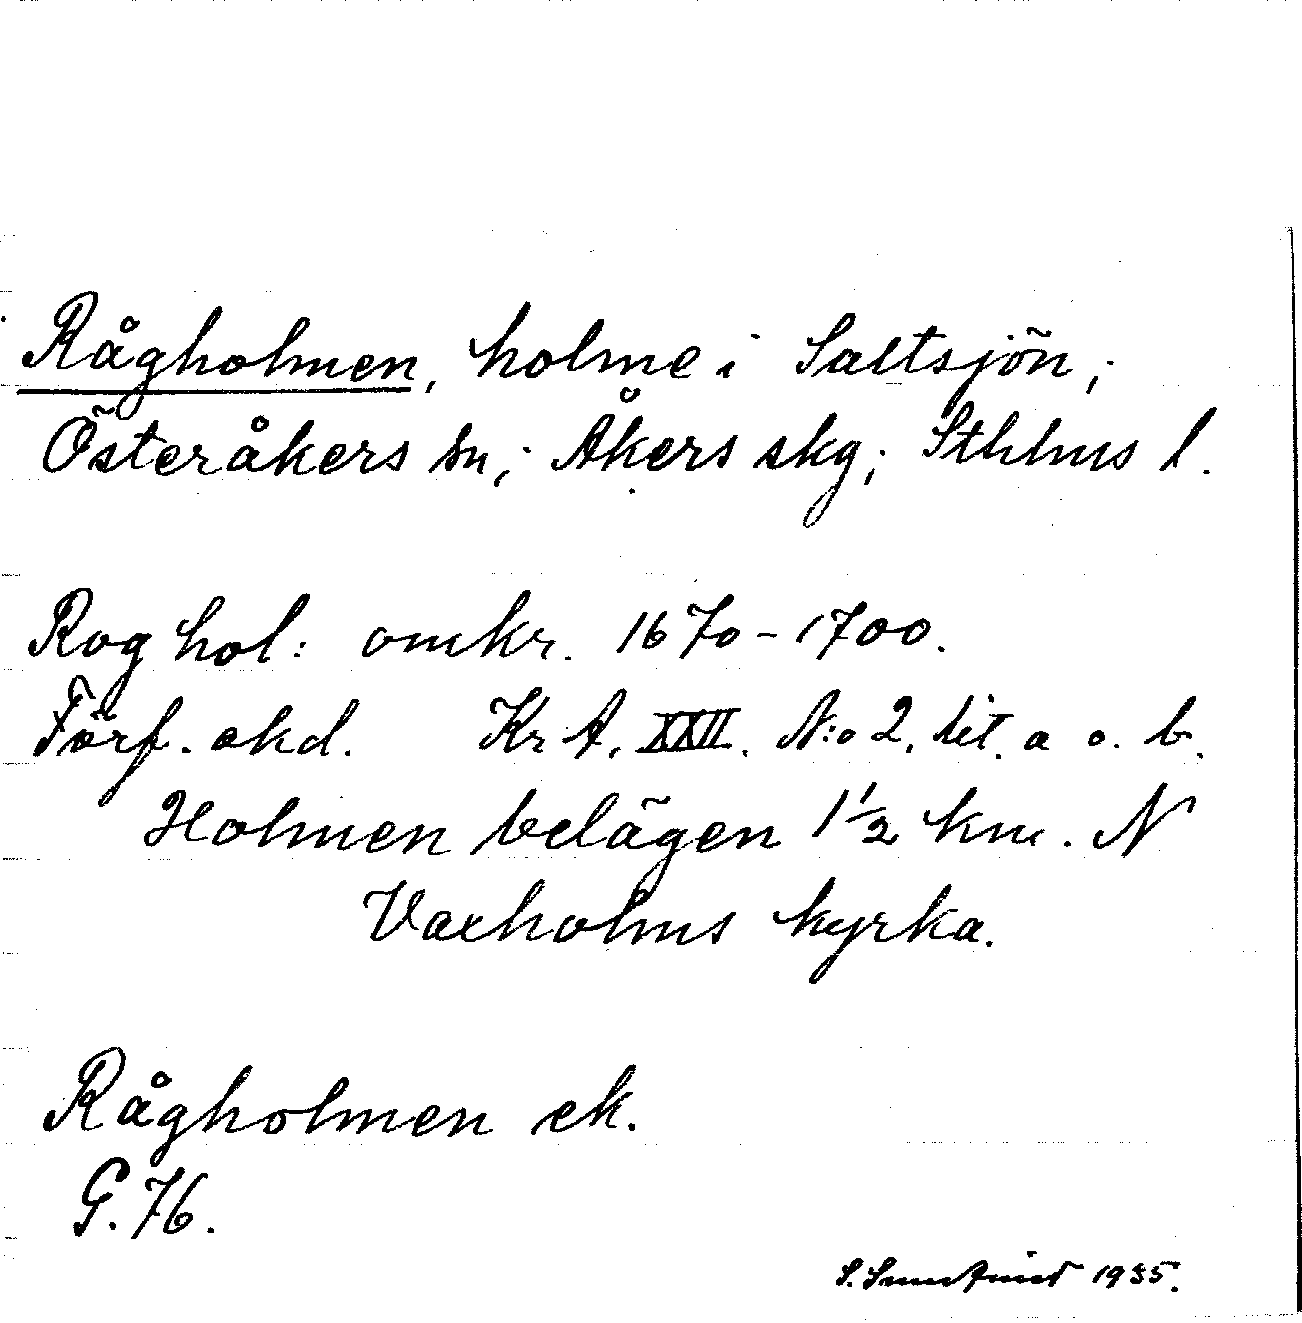 Rågholmen, holme i Saltsjön;
Österåkers sn; Åkers skg; Sthlms l.
Roghol: omkr. 1670-1700.
Förf. okd. Kr A, XXII. N:o 2, lit. a o. b.
Holmen belägen 1½ km. N
Vaxholms kyrka.
Rågholmen ek.
G. 76.
S. 1935.